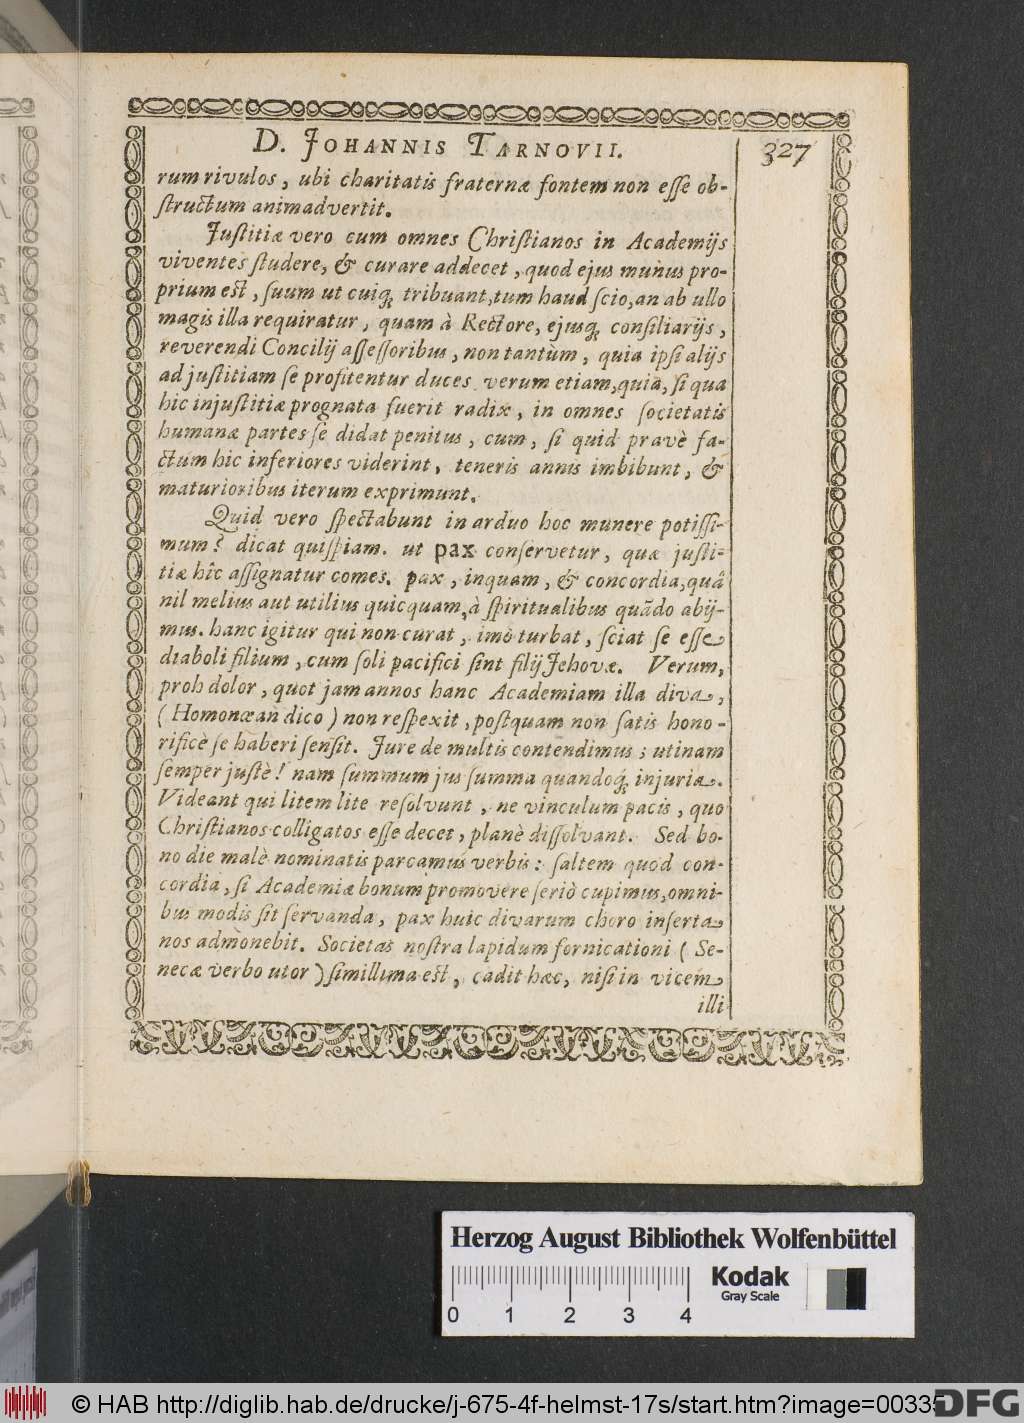 D. JOHANNIS TARNOVII.
327
rum rivulos, ubi charitatis fraternæ fontem non eſſe ob-
ſtructum animadvertit.
Juſtitiæ vero cum omnes Chriſtianos in Academijs
viventes ſtudere, & curare addecet, quod ejus munus pro-
prium eſt, ſuum ut cuiq; tribuant, tum haud ſcio, an ab ullo
magis illa requiratur, quam à Rectore, ejusq; conſiliarijs,
reverendi Concilij aſſeſſoribus, non tantùm, quia ipſi alijs
ad juſtitiam ſe profitentur duces, verum etiam, quia, ſi qua
hic injuſtitiæ prognata fuerit radix, in omnes ſocietatis
humanæ partes ſe didat penitus, cum, ſi quid pravè fa-
ctum hic inferiores viderint, teneris annis imbibunt, &
maturioribus iterum exprimunt.
Quid vero ſpectabunt in arduo hoc munere potiſſi-
mum? dicat quiſpiam. ut pax conſervetur, quæ juſti-
tiæ hîc aſſignatur comes. pax, inquam, & concordia, quâ
nil melius aut utilius quicquam, à ſpiritualibus quãdo abij-
mus. hanc igitur qui non curat, imò turbat, ſciat ſe eſſe
diaboli filium, cum ſoli pacifici ſint filij Jehovæ. Verum,
proh dolor, quot jam annos hanc Academiam illa diva,
(Homonœan dico) non reſpexit, poſtquam non ſatis hono-
rificè ſe haberi ſenſit. Jure de multis contendimus; utinam
ſemper juſtè! nam ſummum jus ſumma quandoq; injuria.
Videant qui litem lite reſolvunt, ne vinculum pacis, quo
Chriſtianos colligatos eſſe decet, planè diſſolvant. Sed bo-
no die malè nominatis parcamus verbis: ſaltem quod con-
cordia, ſi Academiæ bonum promovere ſeriò cupimus, omni-
bus modis ſit ſervanda, pax huic divarum choro inſerta
nos admonebit. Societas noſtra lapidum fornicationi (Se-
necæ verbo utor) ſimillima eſt, cadit hæc, niſi in vicem
illi
Herzog August Bibliothek Wolfenbüttel
0 1 2 3 4
Kodak
Gray Scale
© HAB http://diglib.hab.de/drucke/j-675-4f-helmst-17s/start.htm?image=00335
DFG